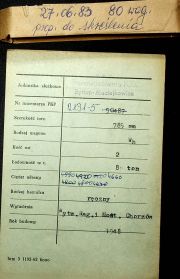 27.06.83 80 wag.
prop. do skreślenia
Jednostka służbowa
Bytom-Maciejkowice
Nr inwentarza PKP
9191-5 59487
Szerokość toru
785 mm
Rodzaj wagonu
Wh
Ilość osi
2
Ładowność w t.
8 ton
Ciężar własny
Rodzaj hamulca
ręczny
Wytwórnia
Wytw. Wag. i Most. Chorzów
Rok budowy
1948